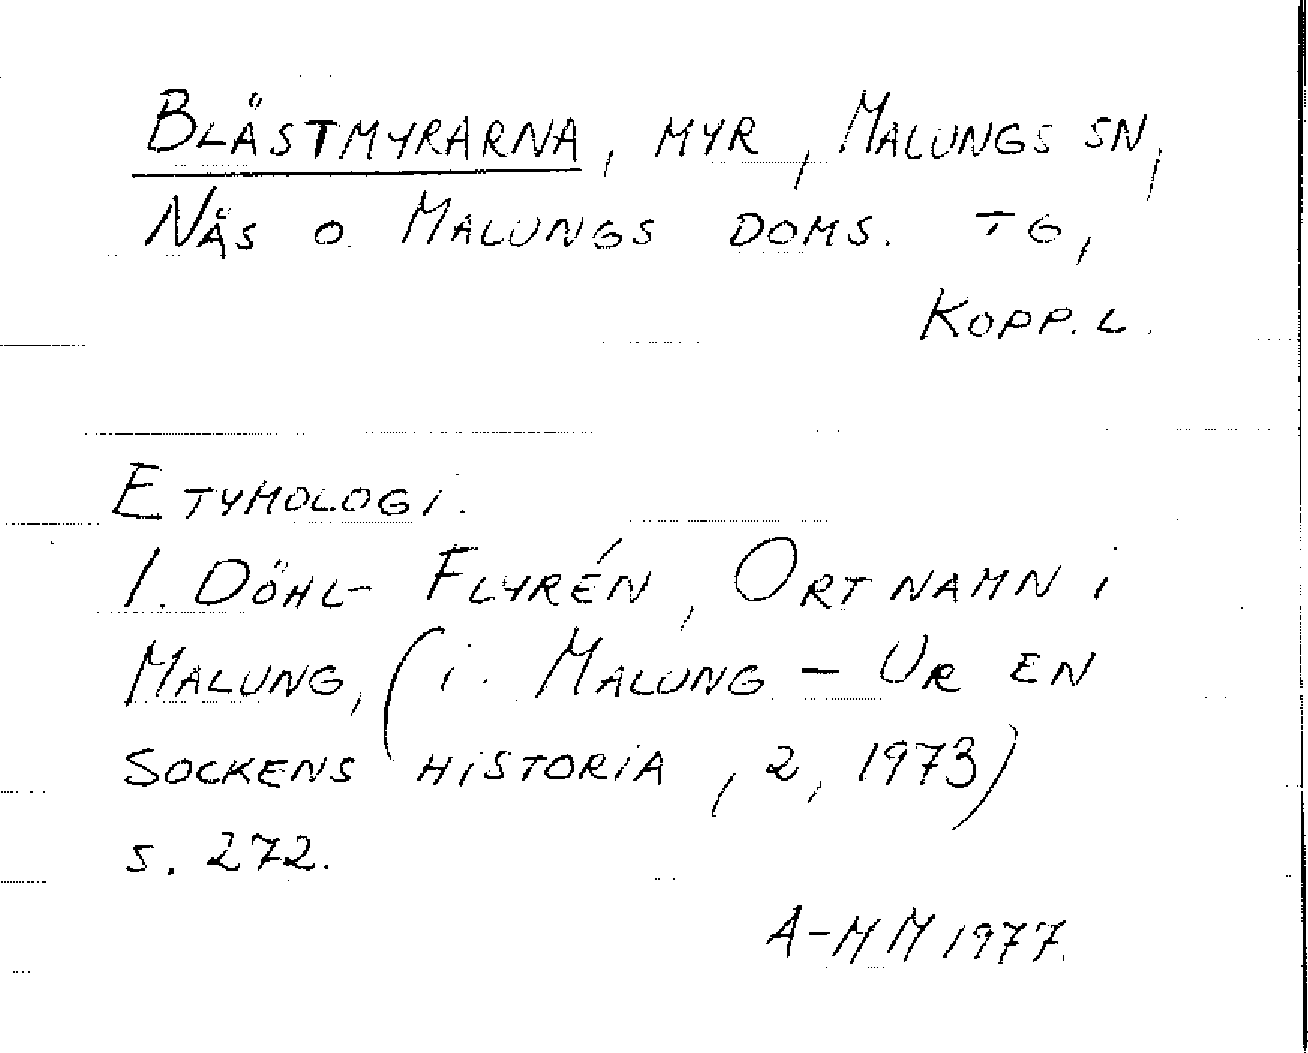 BLÄSTMYRARNA, MYR, MALUNGS SN,
NÄS O. MALUNGS DOMS. TG,
KOPP. L.
ETYMOLOGI.
I. DÖHL-FLYRÉN, ORTNAMN i
MALUNG, (i. MALUNG – UR EN
SOCKENS HiSTORiA, 2, 1973)
s. 272.
A-MM 1977.